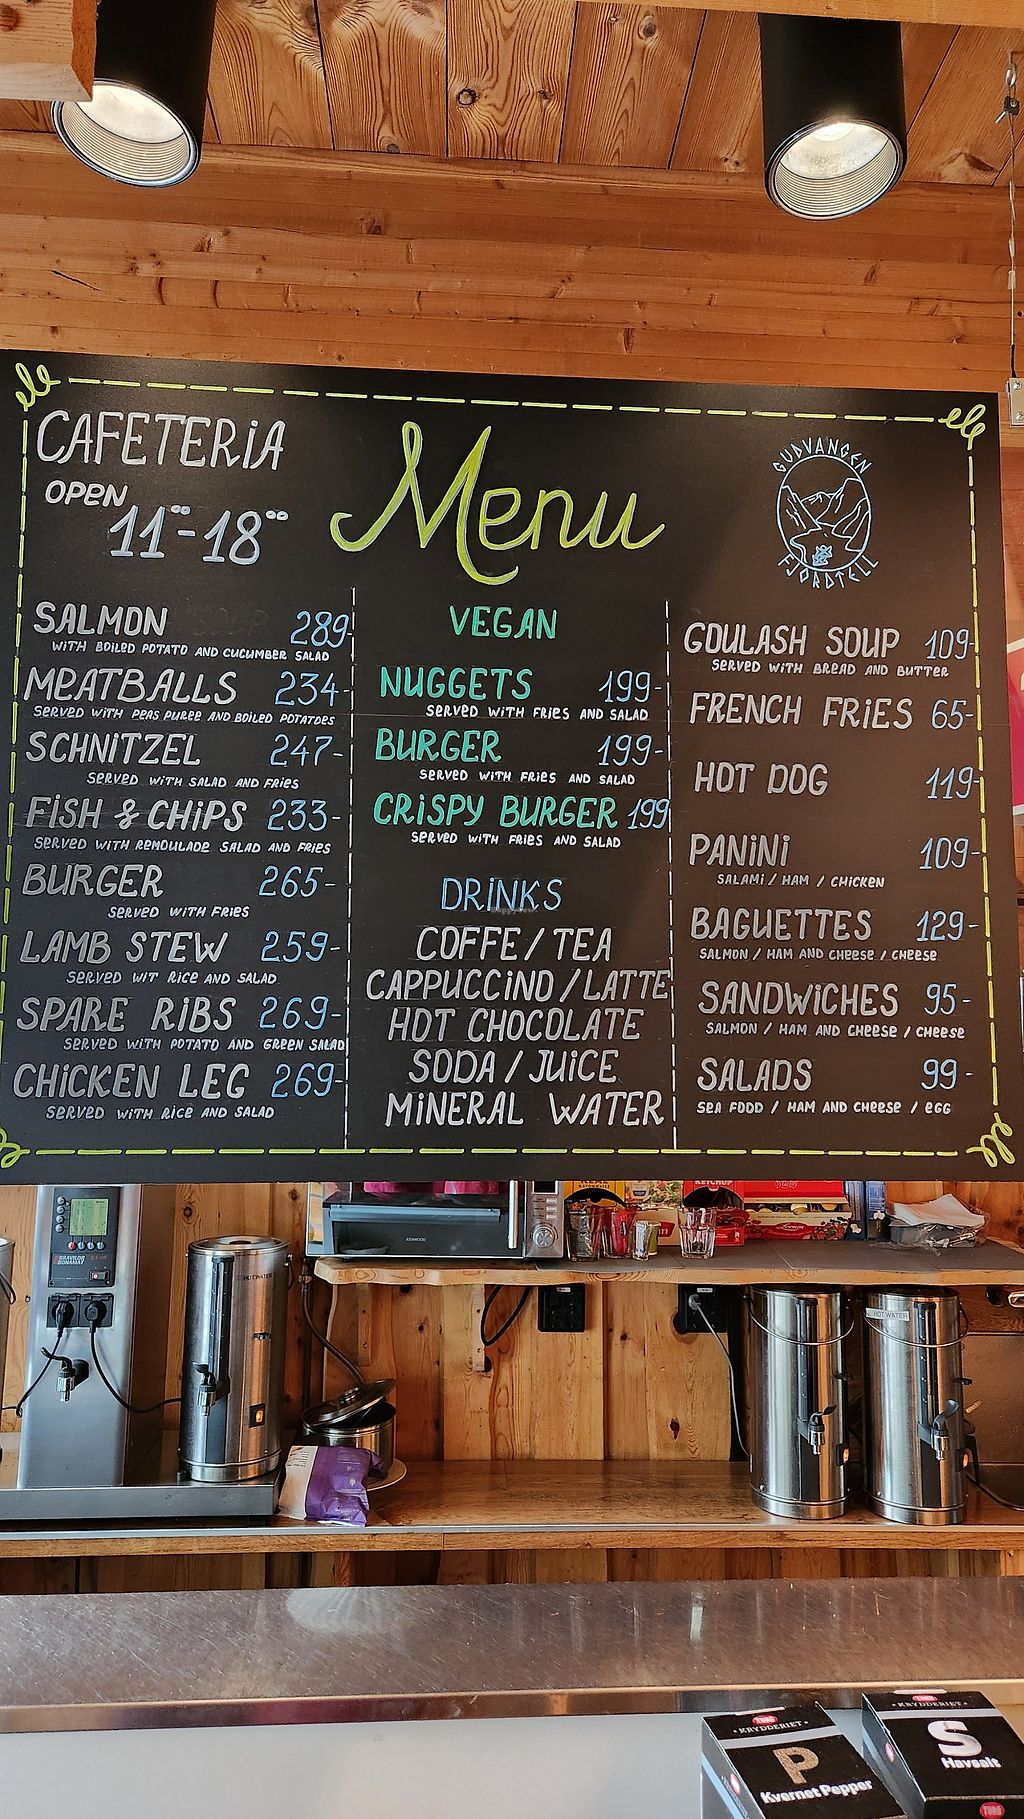 CAFETERIA
OPEN
11°°-18°°
Menu
GUDVANGEN
FJORDTELL
SALMON 289-
WITH BOILED POTATO AND CUCUMBER SALAD
MEATBALLS 234-
SERVED WITH PEAS PUREE AND BOILED POTATOES
SCHNITZEL 247-
SERVED WITH SALAD AND FRIES
FISH & CHIPS 233-
SERVED WITH REMOULADE SALAD AND FRIES
BURGER 265-
SERVED WITH FRIES
LAMB STEW 259-
SERVED WIT RICE AND SALAD
SPARE RIBS 269-
SERVED WITH POTATO AND GREEN SALAD
CHICKEN LEG 269-
SERVED WITH RICE AND SALAD
VEGAN
NUGGETS 199-
SERVED WITH FRIES AND SALAD
BURGER 199-
SERVED WITH FRIES AND SALAD
CRISPY BURGER 199
SERVED WITH FRIES AND SALAD
DRINKS
COFFE/TEA
CAPPUCCINO/LATTE
HOT CHOCOLATE
SODA/JUICE
MINERAL WATER
GOULASH SOUP 109-
SERVED WITH BREAD AND BUTTER
FRENCH FRIES 65-
HOT DOG 119-
PANINI 109-
SALAMI / HAM / CHICKEN
BAGUETTES 129-
SALMON / HAM AND CHEESE / CHEESE
SANDWICHES 95-
SALMON / HAM AND CHEESE / CHEESE
SALADS 99-
SEA FOOD / HAM AND CHEESE / EGG
KENWOOD
KETCHUP
BRAVILOR
BONAMAT
HOT WATER
HOT WATER
TORO
KRYDDERIET
P
Kvernet Pepper
TORO
KRYDDERIET
S
Havsalt
TORO